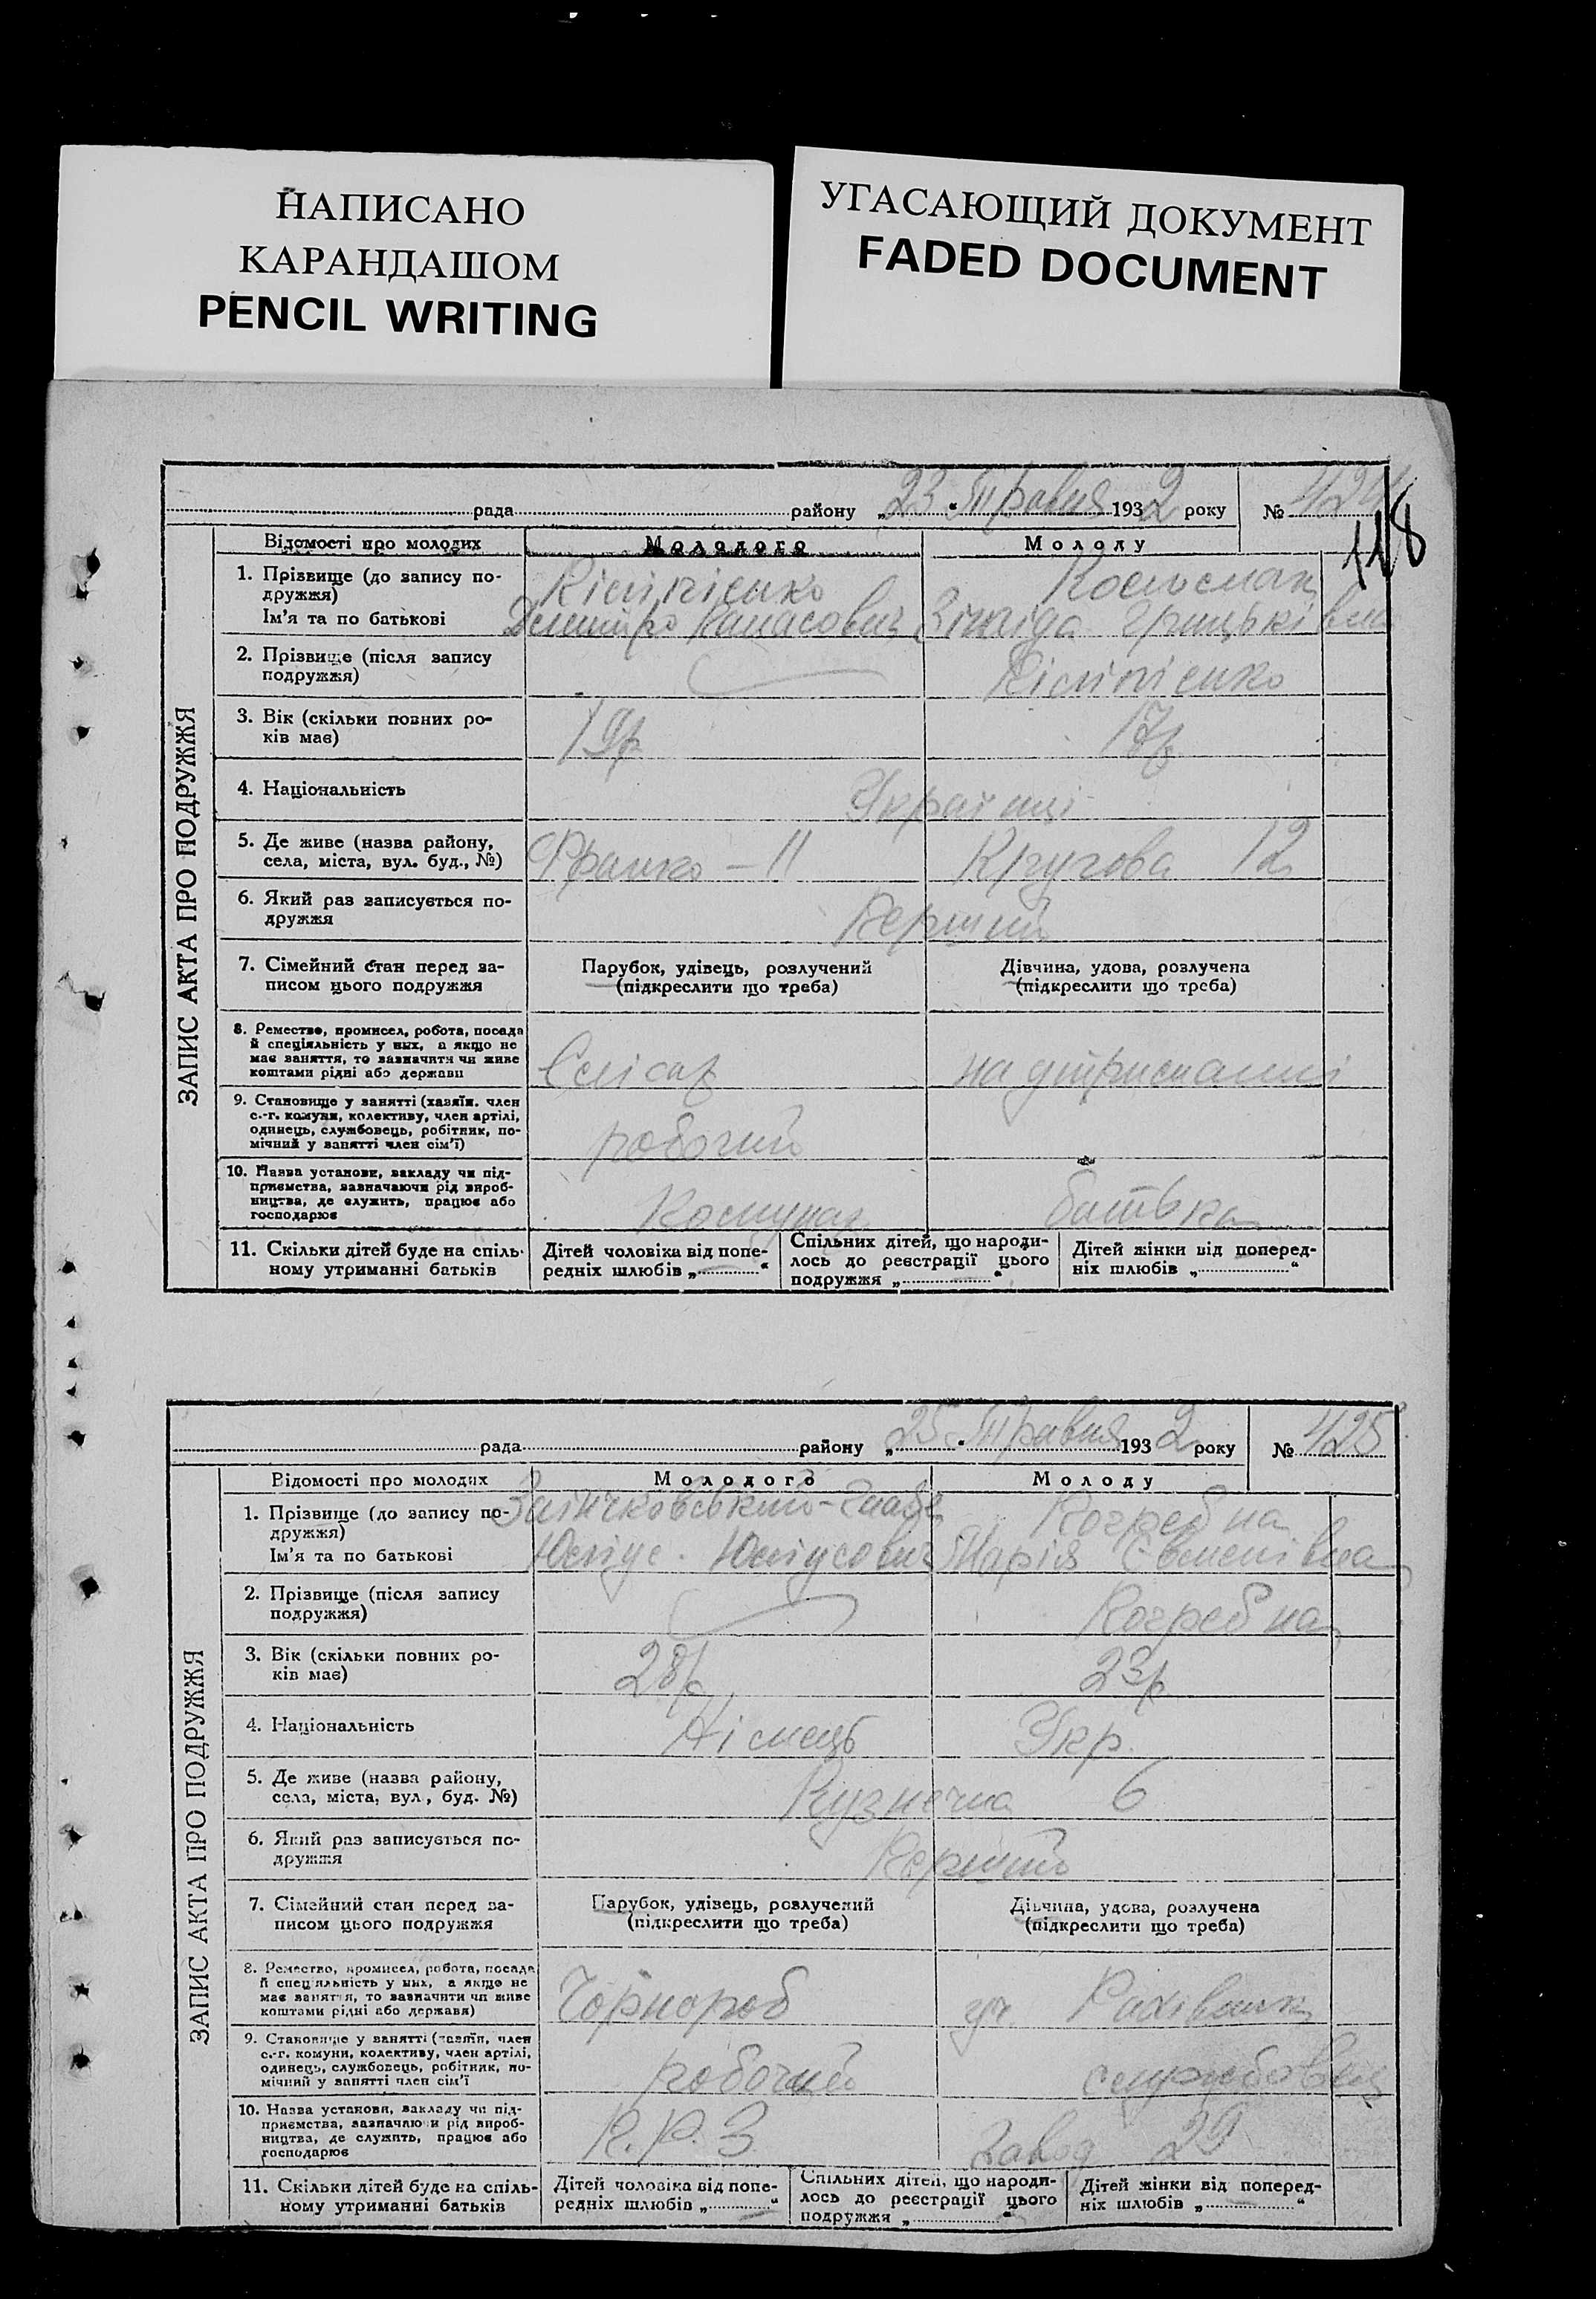 НАПИСАНО
КАРАНДАШОМ
PENCIL WRITING
УГАСАЮЩИЙ ДОКУМЕНТ
FADED DOCUMENT
рада района „23“ Травня 1932 року № 424
118
ЗАПИС АКТА ПРО ПОДРУЖЖЯ
Відомості про молодих Молодого Молоду
1. Прізвище (до запису по-
дружжя)
Ім’я та по батькові
Дмитро Панасович Зінаїда Грицьківна
2. Прізвище (після запису
подружжя)
3. Вік (скільки повних ро-
ків має)
19р 17р
4. Національність
Українці
5. Де живе (назва району,
села, міста, вул. буд., №)
Франко - 11 Кругова 12
6. Який раз записується по-
дружжя
Перший
7. Сімейний стан перед за-
писом цього подружжя
Парубок, удівець, розлучений
(підкреслити що треба)
Дівчина, удова, розлучена
(підкреслити що треба)
8. Ремество, промисел, робота, посада
й спеціяльність у них, а якщо не
має заняття, то зазначити чи живе
коштами рідні або держави
Слісар на утриманні
9. Становище у занятті (хазяїн, член
с.-г. комуни, колективу, член артілі,
одинець, службовець, робітник, по-
мічний у занятті член сім’ї)
робочий
10. Назва установи, закладу чи під-
приємства, зазначаючи рід вироб-
ництва, де служить, працює або
господарює
Комунар батька
11. Скільки дітей буде на спіль-
ному утриманні батьків
Дітей чоловіка від попе-
редніх шлюбів „ “
Спільних дітей, що народи-
лось до реєстрації цього
подружжя „ “
Дітей жінки від поперед-
ніх шлюбів „ “
рада району „25“ Травня 1932 року № 425
ЗАПИС АКТА ПРО ПОДРУЖЖЯ
Відомості про молодих Молодого Молоду
1. Прізвище (до запису по-
дружжя)
Погребна
Ім’я та по батькові
Юліус Юліусович Марія Семенівна
2. Прізвище (після запису
подружжя)
Погребна
3. Вік (скільки повних ро-
ків має)
28р 23р
4. Національність
Німець Укр.
5. Де живе (назва району,
села, міста, вул, буд. №)
Кузнечна 6
6. Який раз записується по-
дружжя
Перший
7. Сімейний стан перед за-
писом цього подружжя
Парубок, удівець, розлучений
(підкреслити що треба)
Дівчина, удова, розлучена
(підкреслити що треба)
8. Ремество, промисел, робота, посада
й спеціяльність у них, а якщо не
має заняття, то зазначити чи живе
коштами рідні або держава)
Чорнороб уч. Рахівник
9. Становище у занятті (хазяїн, член
с.-г. комуни, колективу, член артілі,
одинець, службовець, робітник, по-
мічний у занятті член сім’ї
робочий службовець
10. Назва установи, закладу чи під-
приємства, зазначаючи рід вироб-
ництва, де служить, працює або
господарює
П.Р.З завод 29
11. Скільки дітей буде на спіль-
ному утриманні батьків
Дітей чоловіка від попе-
редніх шлюбів „ “
Спільних дітей, що народи-
лось до реєстрації цього
подружжя „ “
Дітей жінки від поперед-
ніх шлюбів „ “